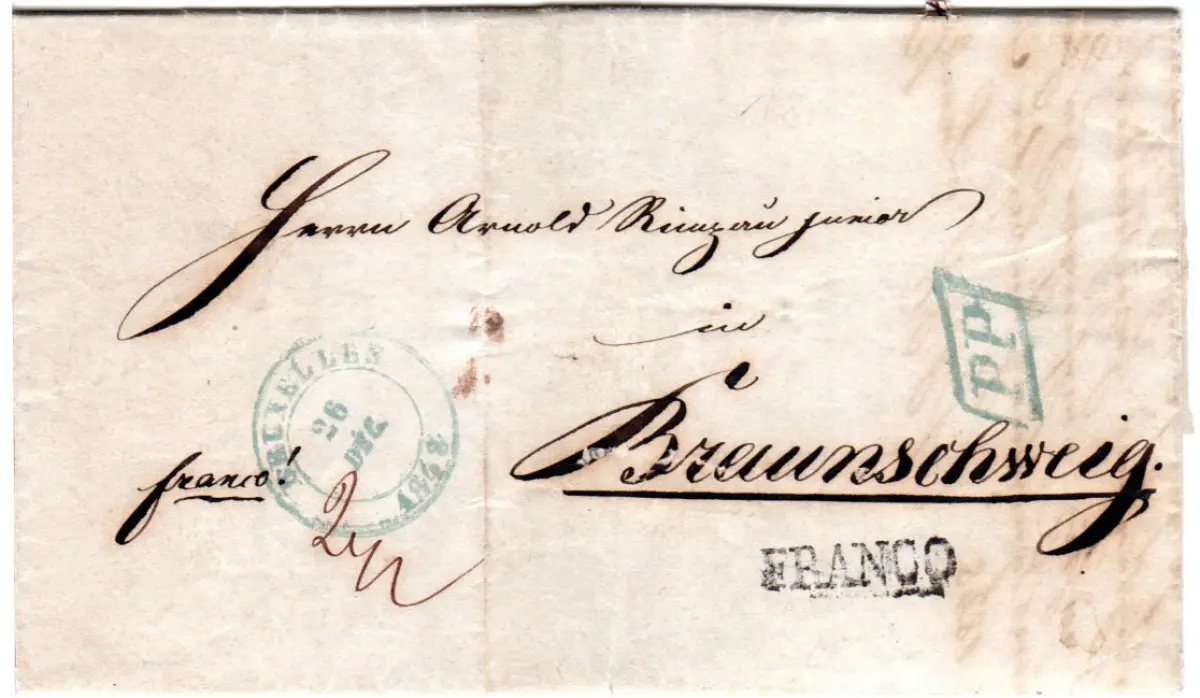 Herrn Arnold Rimpau junior
in
Braunschweig.
franco!
BRUXELLES
26
DÉC.
1848
PP
FRANCO